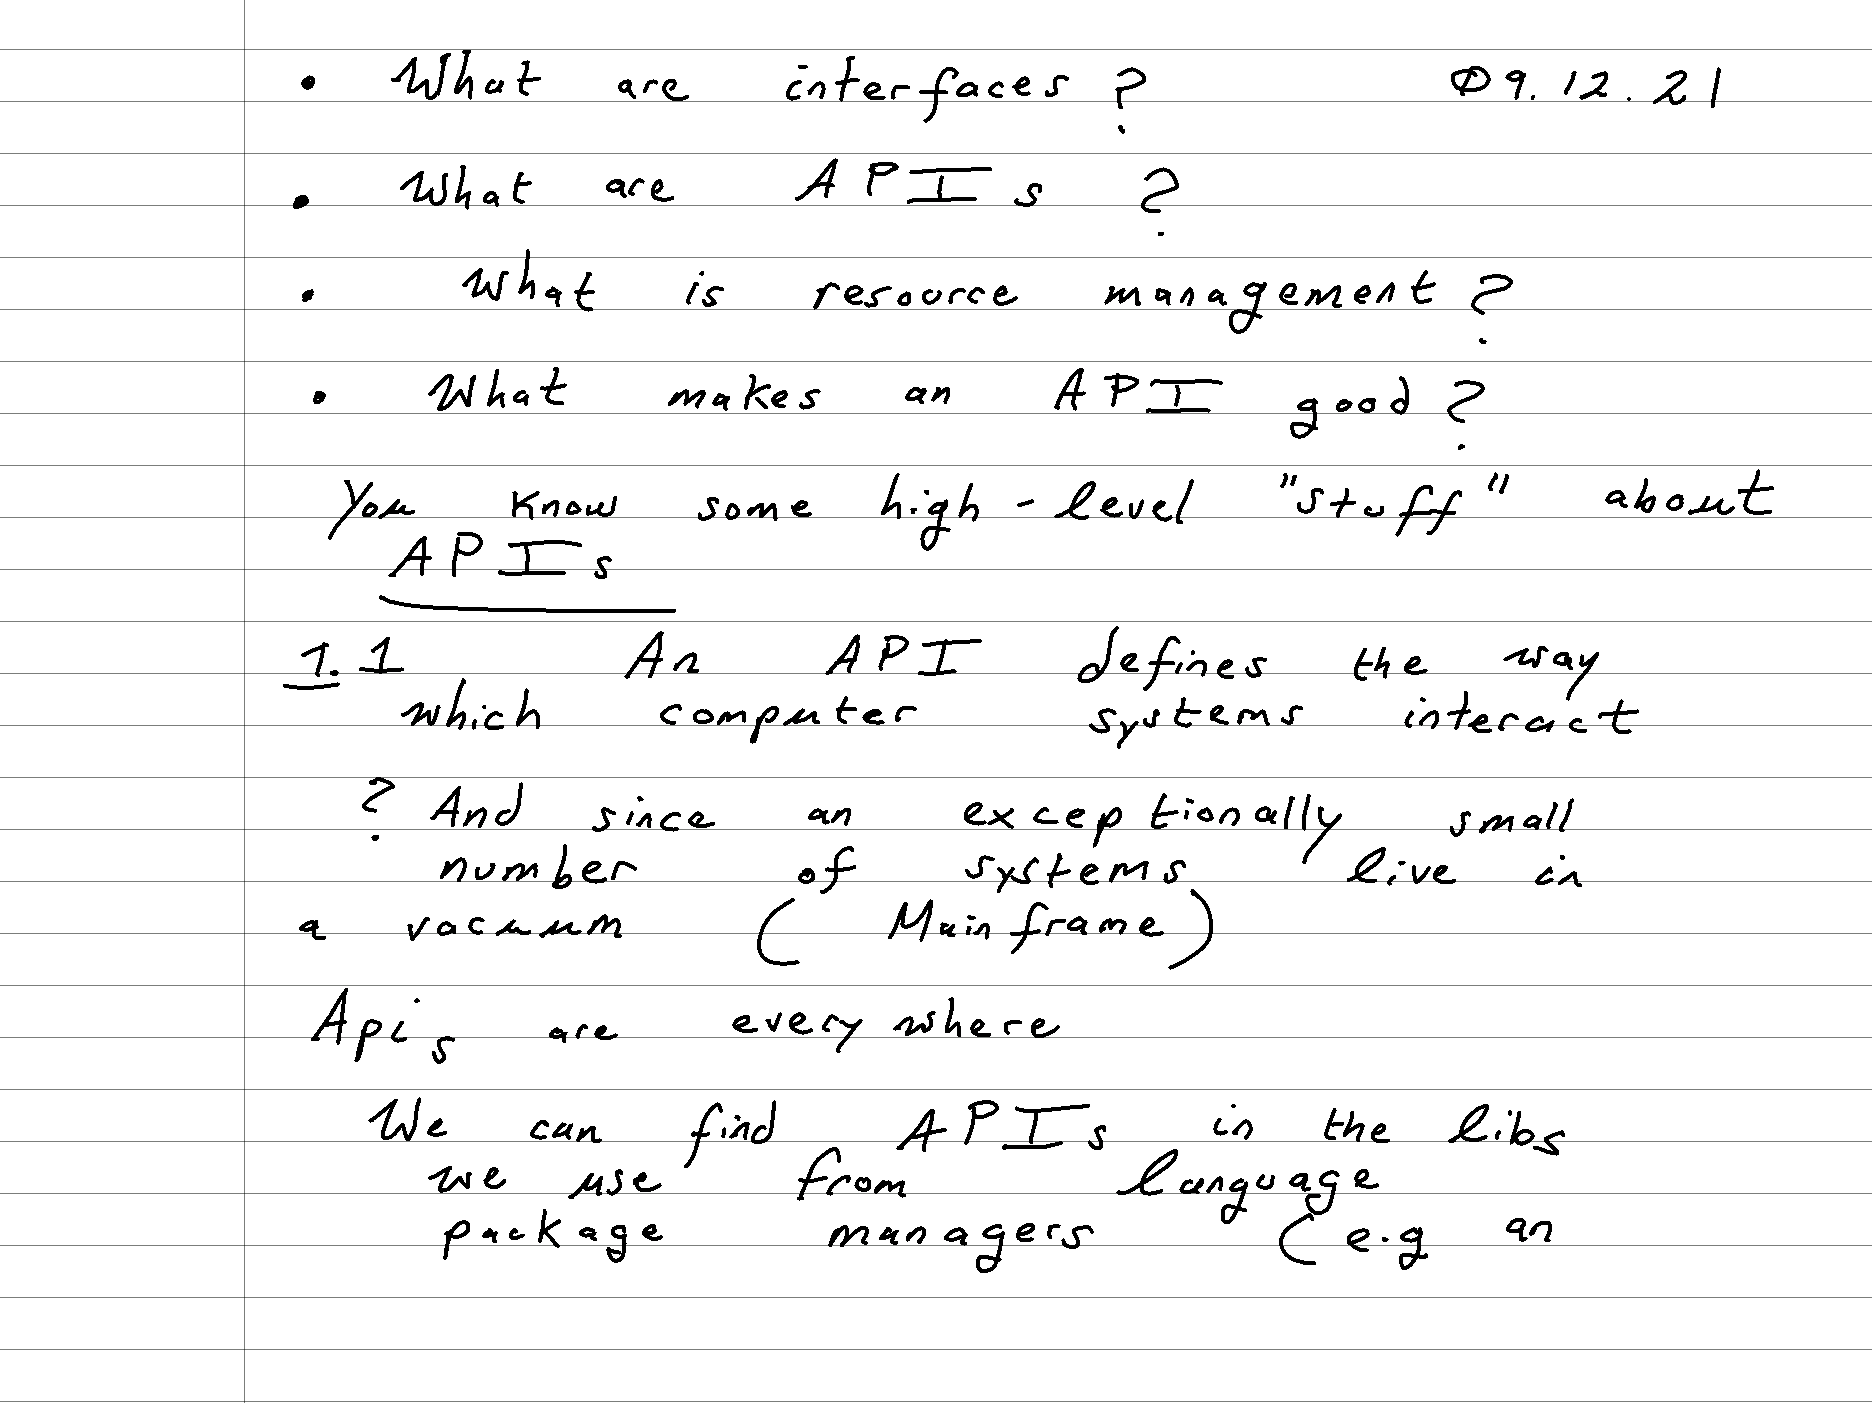 • What are interfaces? 09.12.21
• What are APIs ?
• What is resource management?
• What makes an API good?
You know some high-level "stuff" about
APIs
1.1 An API defines the way
which computer systems interact
? And since an exceptionally small
number of systems live in
a vacuum (Mainframe)
Apis are everywhere
We can find APIs in the libs
we use from language
package managers (e.g an